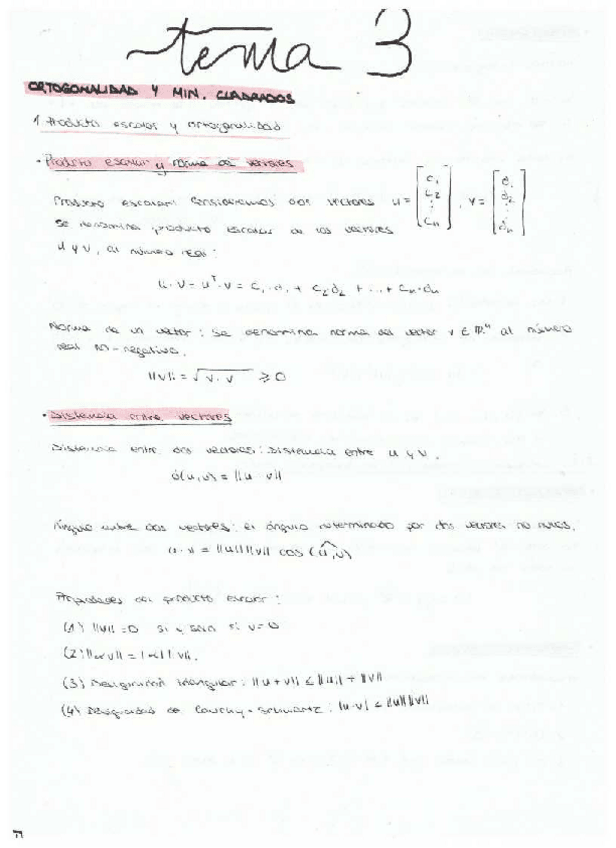 tema 3
ORTOGONALIDAD Y MIN. CUADRADOS
1. Producto escalar y ortogonalidad
· Producto escalar y norma de vectores
Producto escalar: Consideremos dos vectores u = [c₁ c₂ ⋮ cₙ], v = [d₁ d₂ ⋮ dₙ]
Se denomina producto escalar de los vectores
u y v, al número real:
u · v = uᵀ · v = c₁ · d₁ + c₂d₂ + ... + cₙ · dₙ
Norma de un vector: Se denomina norma del vector v ∈ ℝⁿ al número
real no-negativo.
||v|| = √v · v ≥ 0
· Distancia entre vectores
Distancia entre dos vectores: Distancia entre u y v.
d(u,v) = ||u - v||
Ángulo entre dos vectores: el ángulo determinado por dos vectores no nulos,
u · v = ||u|| ||v|| cos (u,v)
Propiedades del producto escalar:
(1) ||v|| = 0 si y solo si v = 0
(2) ||αv|| = |α| ||v||.
(3) Desigualdad triangular: ||u + v|| ≤ ||u|| + ||v||
(4) Desigualdad de Cauchy - Schwartz: |u·v| ≤ ||u|| ||v||